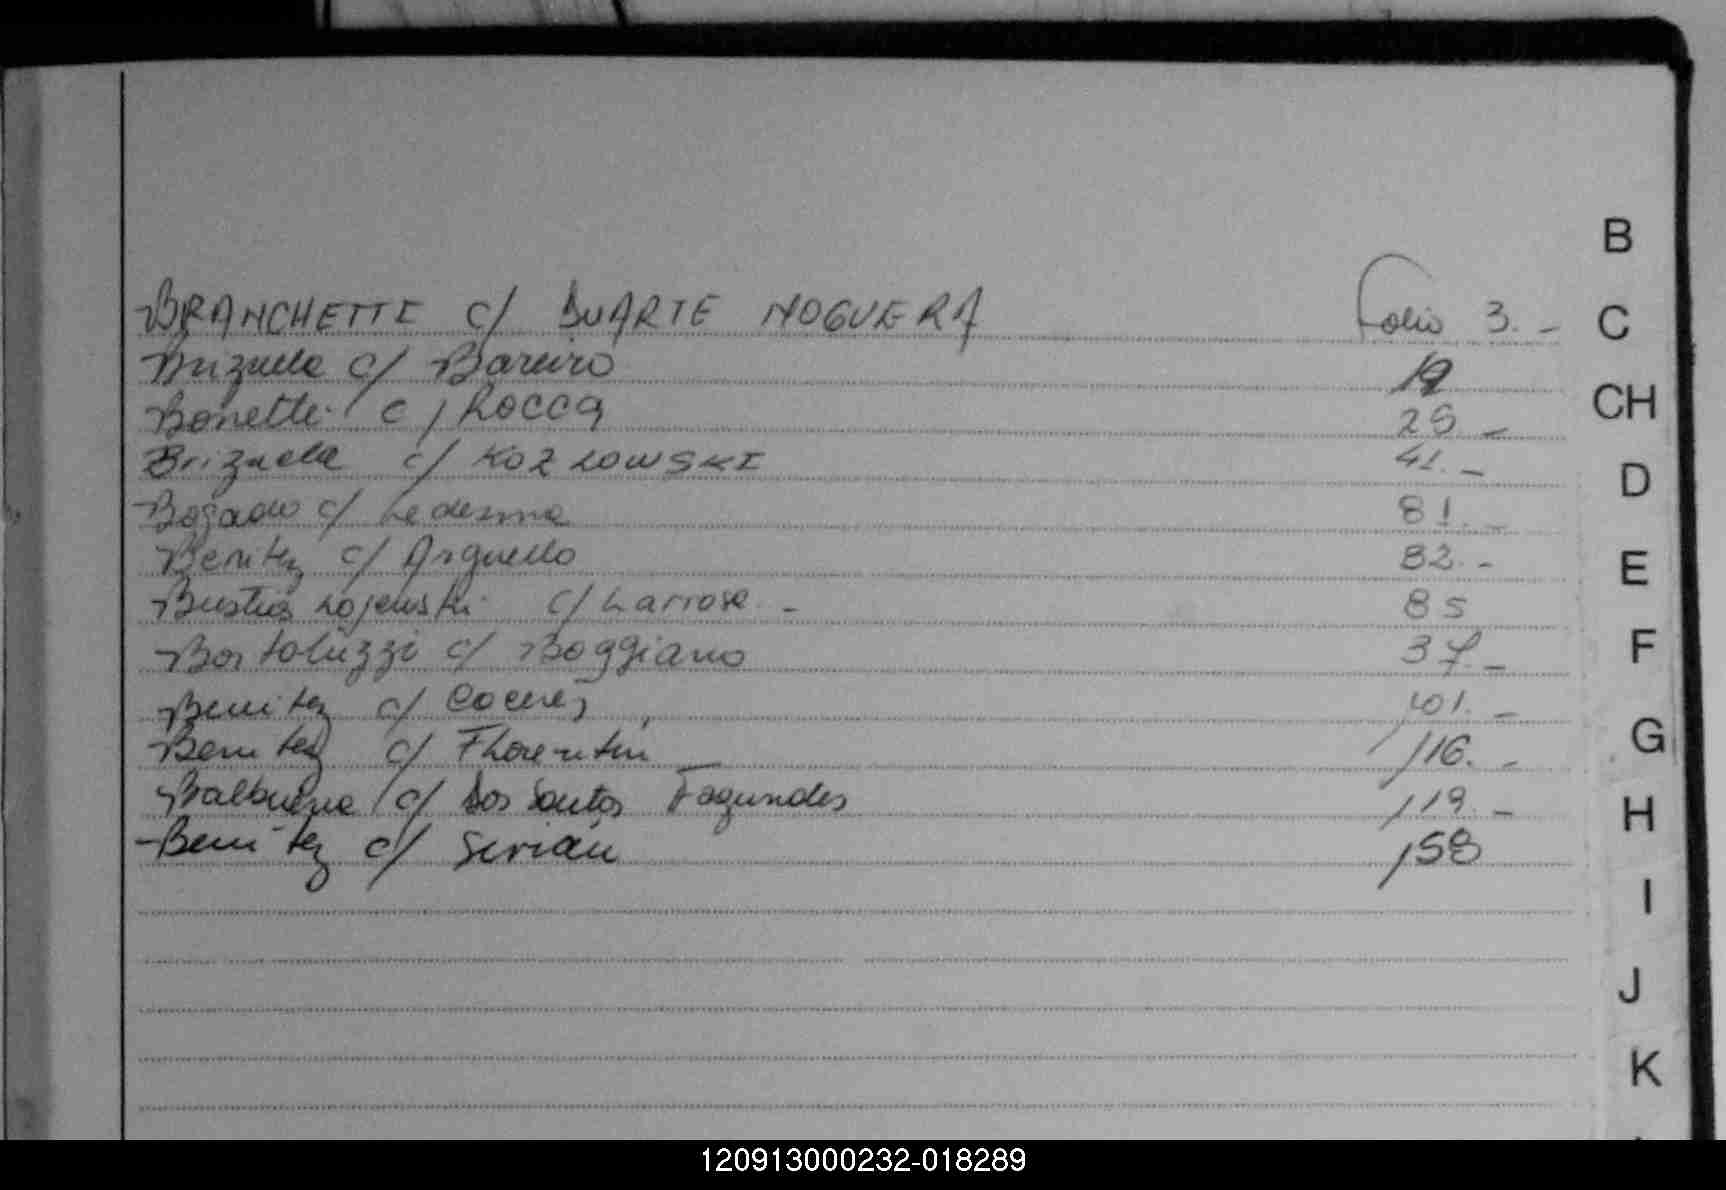 B
BRANCHETTE c/ DUARTE NOGUERA Folio 3.-
C
Brizuela c/ Bareiro
CH
Bonetti c/ Rocca 25-
Brizuela c/ KOZLOWSKI 41.-
D
Bogado c/ Ledesma 81.-
Benitez c/ Arguello 82.-
E
Bustos c/ Larrose.- 85
Bortoluzzi c/ Boggiano 37-
F
Benitez c/ Coceres 101.-
Benitez c/ Florentin 116.-
G
Balbuena c/ Dos Santos Fagundes 119.-
H
-Benitez c/ 158
I
J
K
120913000232-018289